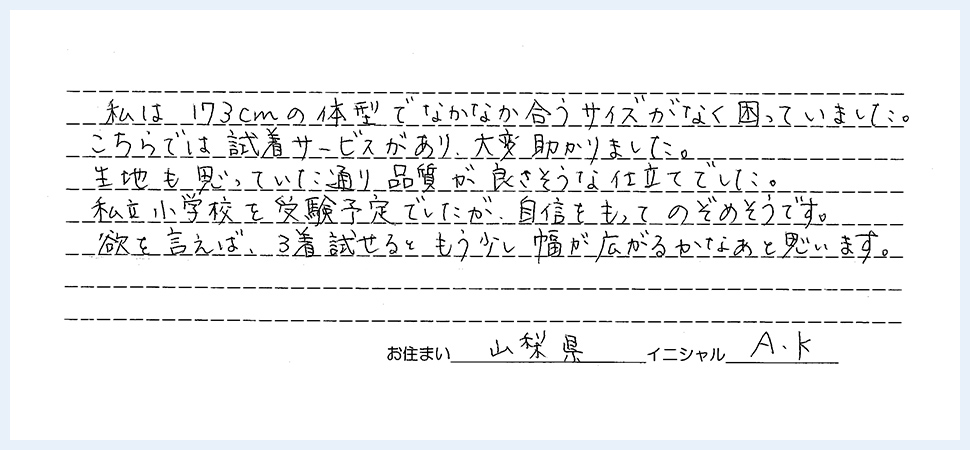 私は173cmの体型でなかなか合うサイズがなく困っていました。
こちらでは試着サービスがあり、大変助かりました。
生地も思っていた通り品質が良さそうな仕立てでした。
私立小学校を受験予定でしたが、自信をもってのぞめそうです。
欲を言えば、3着試せるともう少し幅が広がるかなあと思います。
お住まい 山梨県 イニシャル A.K